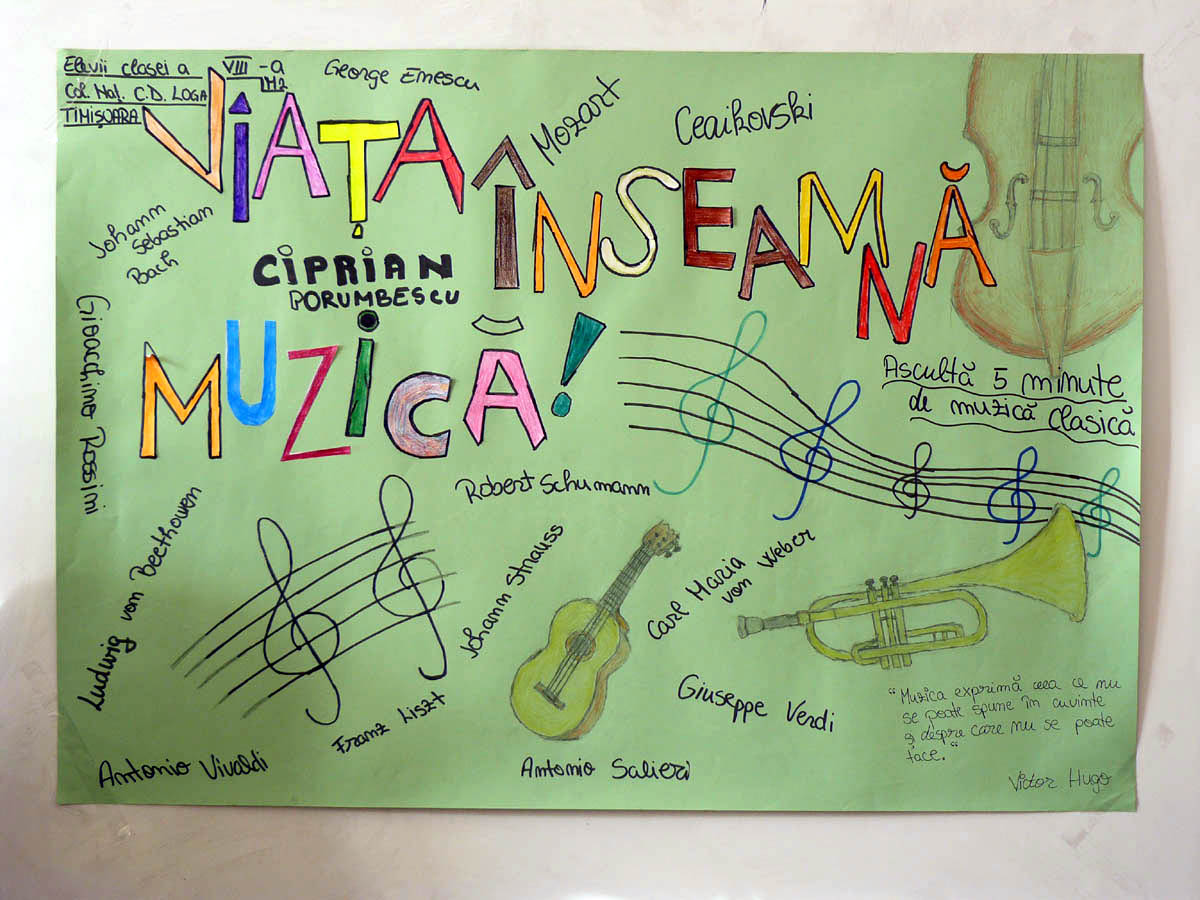 Elevii clasei a VIII-a
M2
Col. Naț. C.D. LOGA
TIMIȘOARA
George Enescu
Mozart
Ceaikovski
VIAȚA
ÎNSEAMNĂ
MUZICĂ!
Johann
Sebastian
Bach
CIPRIAN
PORUMBESCU
Gioacchino Rossini
Ascultă 5 minute
de muzică clasică
Robert Schumann
Ludwig von Beethoven
Johann Strauss
Carl Maria
von Weber
Franz Liszt
Giuseppe Verdi
Antonio Vivaldi
Antonio Salieri
"Muzica exprimă ceea ce nu
se poate spune în cuvinte
și despre care nu se poate
tace."
Victor Hugo